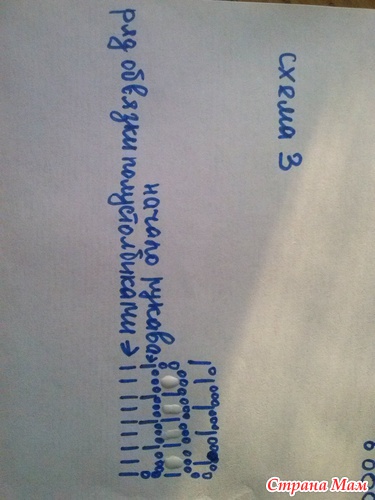 схема 3
начало рукава →
ряд обвязки полустолбиками →
Страна Мам